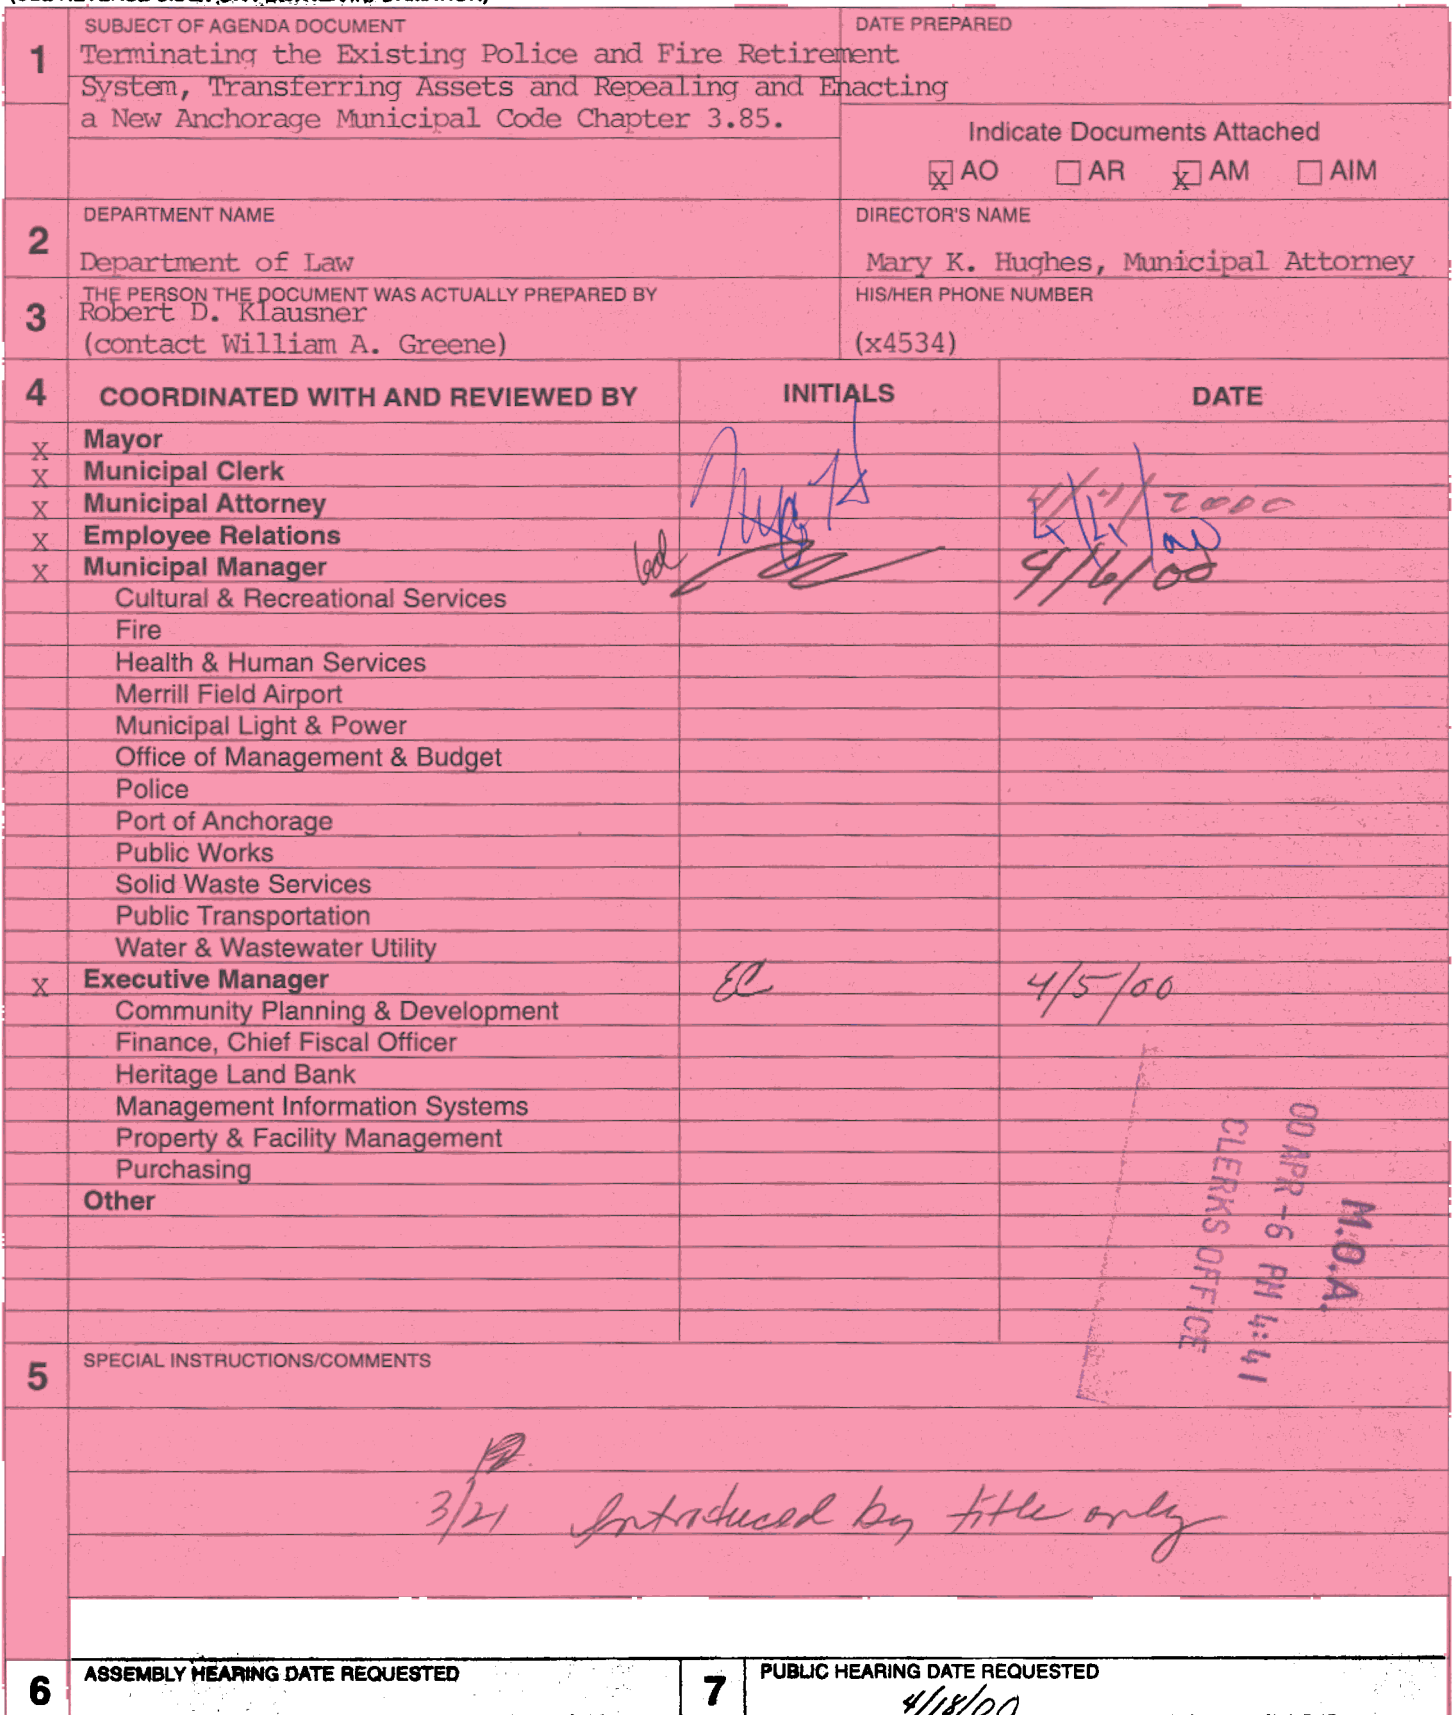 1
SUBJECT OF AGENDA DOCUMENT
Terminating the Existing Police and Fire Retirement
System, Transferring Assets and Repealing and Enacting
a New Anchorage Municipal Code Chapter 3.85.
DATE PREPARED
Indicate Documents Attached
X AO AR X AM AIM
2
DEPARTMENT NAME
Department of Law
DIRECTOR'S NAME
Mary K. Hughes, Municipal Attorney
3
THE PERSON THE DOCUMENT WAS ACTUALLY PREPARED BY
Robert D. Klausner
(contact William A. Greene)
HIS/HER PHONE NUMBER
(x4534)
4 COORDINATED WITH AND REVIEWED BY INITIALS DATE
X Mayor
X Municipal Clerk
X Municipal Attorney 2000
X Employee Relations 4/4/00
X Municipal Manager 4/6/00
Cultural & Recreational Services
Fire
Health & Human Services
Merrill Field Airport
Municipal Light & Power
Office of Management & Budget
Police
Port of Anchorage
Public Works
Solid Waste Services
Public Transportation
Water & Wastewater Utility
X Executive Manager EC 4/5/00
Community Planning & Development
Finance, Chief Fiscal Officer
Heritage Land Bank
Management Information Systems
Property & Facility Management
Purchasing
Other
M.O.A.
00 APR -6 PM 4:41
CLERKS OFFICE
5
SPECIAL INSTRUCTIONS/COMMENTS
3/21 Introduced by title only
6 ASSEMBLY HEARING DATE REQUESTED
7 PUBLIC HEARING DATE REQUESTED
4/18/00